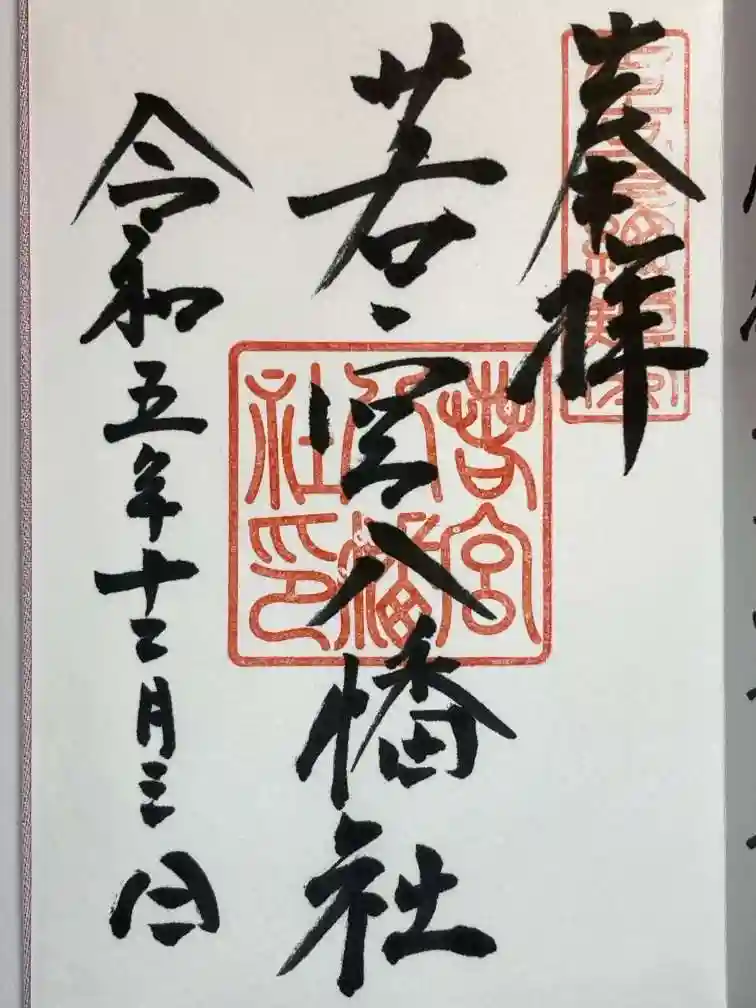 奉拝
若宮八幡社
令和五年十二月三日
若宮八幡社印